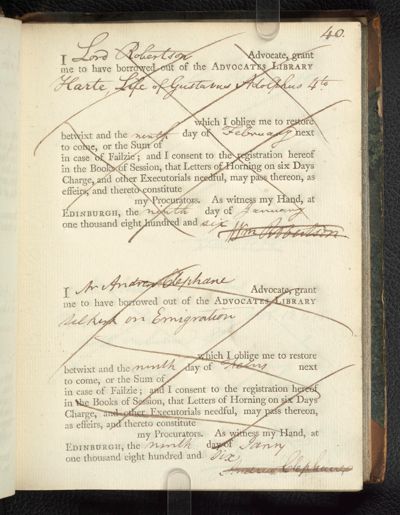 40.
I Lord Robertson Advocate, grant
me to have borrowed out of the ADVOCATES LIBRARY
Harte, Life of Gustavus Adolphus 4to
which I oblige me to restore
betwixt and the ninth day of February next
to come, or the Sum of
in case of Failzie; and I consent to the registration hereof
in the Books of Session, that Letters of Horning on six Days
Charge, and other Executorials needful, may pass thereon, as
effeirs, and thereto constitute
my Procurators. As witness my Hand, at
EDINBURGH, the ninth day of January
one thousand eight hundred and six Wm Robertson
I Mr Andrew Clephane Advocate, grant
me to have borrowed out of the ADVOCATES LIBRARY
Selkirk on Emigration
which I oblige me to restore
betwixt and the ninth day of next
to come, or the Sum of
in case of Failzie; and I consent to the registration hereof
in the Books of Session, that Letters of Horning on six Days
Charge, and other Executorials needful, may pass thereon,
as effeirs, and thereto constitute
my Procurators. As witness my Hand, at
EDINBURGH, the ninth day of Jany
one thousand eight hundred and six
Andrew Clephane